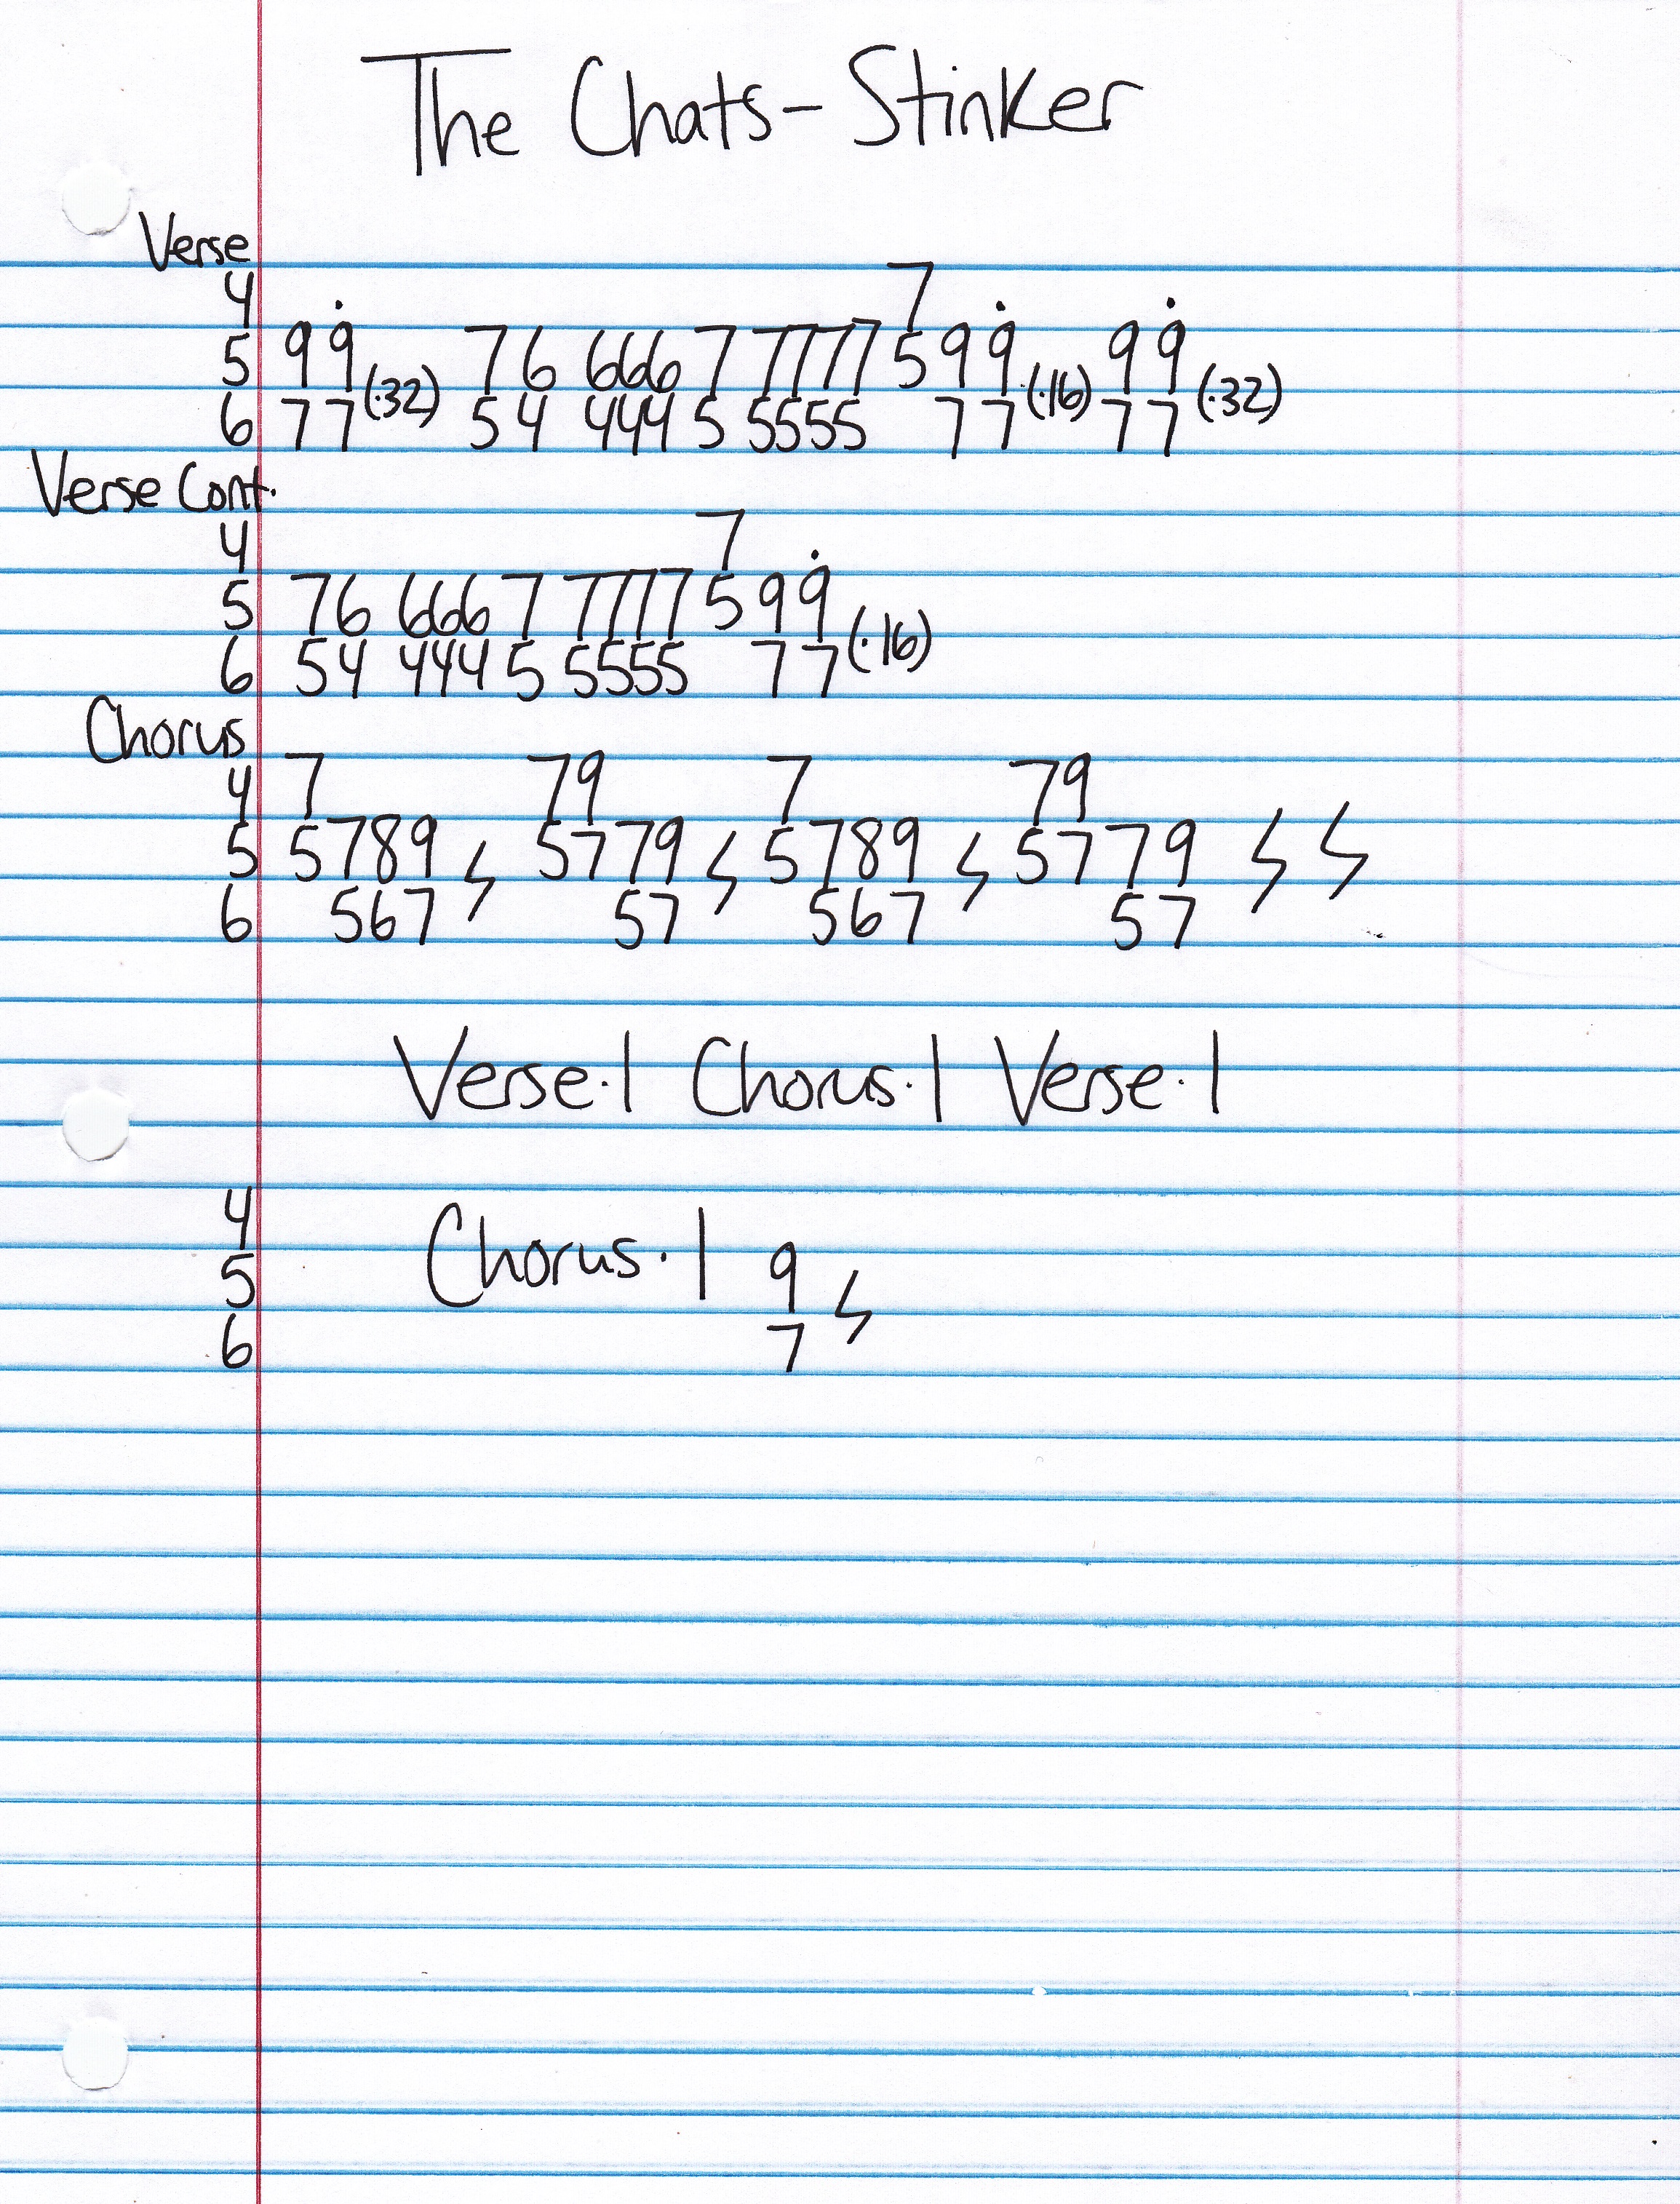 The Chats- Stinker
Verse
4 7
5 99(·32) 76 666 7 7777 599(·16) 99(·32)
6 77 54 444 5 5555 77 77
Verse Cont.
4 7
5 76 666 7 7777 599
6 54 444 5 5555 77(·16)
Chorus
4 7 79 7 79
5 5789 5779 5789 5779
6 567 57 567 57
Verse·1 Chorus·1 Verse·1
4
5 Chorus·1 9
6 7